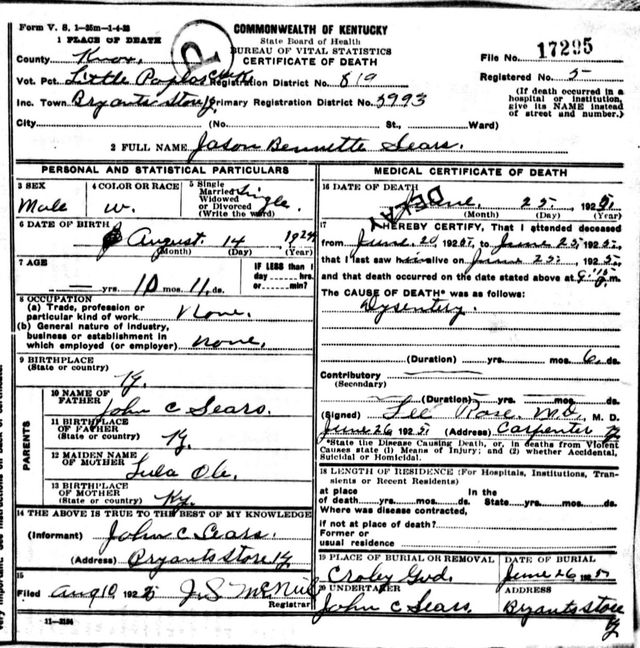 Form V. S. 1-35m-1-4-23
COMMONWEALTH OF KENTUCKY
State Board of Health
BUREAU OF VITAL STATISTICS
CERTIFICATE OF DEATH
1 PLACE OF DEATH
County Knox.
Vot. Pct. Little Poplar Creek Registration District No. 819
Inc. Town Bryants Store Primary Registration District No. 5993
City (No. St., Ward)
File No. 17295
Registered No. 5
(If death occurred in a
hospital or institution,
give its NAME instead
of street and number.)
2 FULL NAME Jason Bennette Sears.
PERSONAL AND STATISTICAL PARTICULARS
3 SEX
Male
4 COLOR OR RACE
w.
5 Single
Married
Widowed
or Divorced
(Write the word)
Single.
6 DATE OF BIRTH
August 14 1924
(Month) (Day) (Year)
7 AGE
yrs. 10 mos. 11 ds.
IF LESS than 1
day hrs.
or min?
8 OCCUPATION
(a) Trade, profession or
particular kind of work None.
(b) General nature of industry,
business or establishment in
which employed (or employer) None.
9 BIRTHPLACE
(State or country)
Ky.
PARENTS
10 NAME OF
FATHER John C Sears.
11 BIRTHPLACE
OF FATHER
(State or country) Ky.
12 MAIDEN NAME
OF MOTHER Lula
13 BIRTHPLACE
OF MOTHER
(State or country) Ky.
14 THE ABOVE IS TRUE TO THE BEST OF MY KNOWLEDGE
(Informant) John C Sears.
(Address) Bryants Store Ky
15
Filed Aug 10 1925 J.S. McNeil
Registrar
11-3184
MEDICAL CERTIFICATE OF DEATH
16 DATE OF DEATH
June. 25. 1925
(Month) (Day) (Year)
DELAY
17 I HEREBY CERTIFY, That I attended deceased
from June. 20 1925, to June 25 1925,
that I last saw him alive on June 25, 1925
and that death occurred on the date stated above at m.
The CAUSE OF DEATH* was as follows:
Dysentery.
(Duration) yrs. mos. 6 ds.
Contributory
(Secondary)
(Duration) yrs. mos. ds.
(Signed) Lee Rose. M.D., M. D.
June 26, 1925 (Address) Carpenter Ky
*State the Disease Causing Death, or, in deaths from Violent
Causes state (1) Means of Injury; and (2) whether Accidental,
Suicidal or Homicidal.
18 LENGTH OF RESIDENCE (For Hospitals, Institutions, Tran-
sients or Recent Residents)
at place In the
of death yrs. mos. ds. State yrs. mos. ds.
Where was disease contracted,
if not at place of death?
Former or
usual residence
19 PLACE OF BURIAL OR REMOVAL
Croley Gvd.
DATE OF BURIAL
June 26 1925
20 UNDERTAKER
John C Sears.
ADDRESS
Bryants Store
Ky